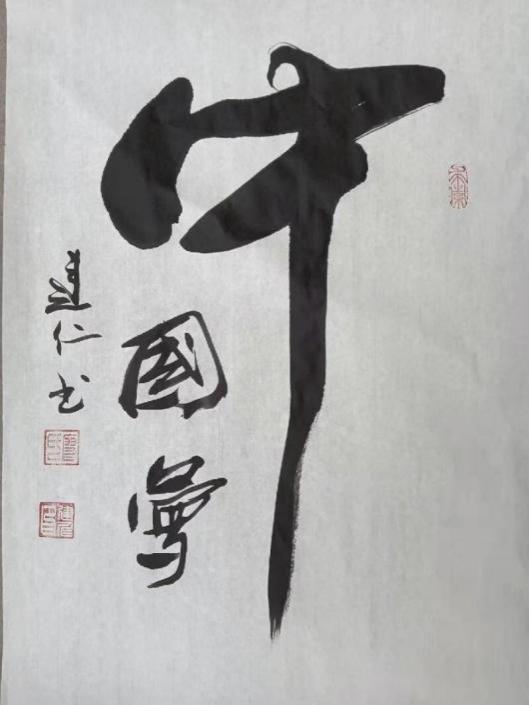 中
國夢
建仁书